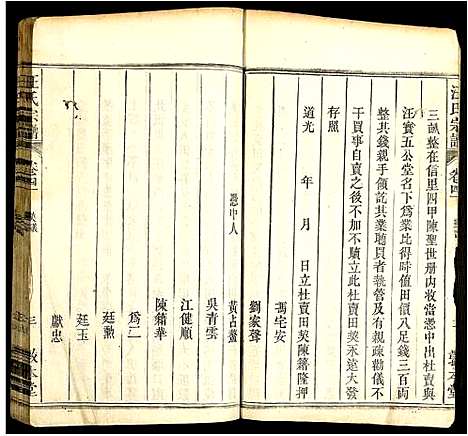 汪氏宗譜
卷四
三畝整在信里四甲陳聖世册内收當憑中出杜賣與
汪實五公堂名下為業比得時值田價八足錢三百兩
整其錢親手領訖其田聽買者執管及有親疎勸儀不
干買事自賣之後不加不贖立此杜賣田契永遠大發
存照
道光　年　月　日立杜賣田契陳籍隆押
馮宅安
劉家聲
憑中人　黃占鰲
吳青雲
江健順
陳籍華
為二
廷勲
廷玉
獻忠
汪氏宗譜
卷四
三
敦本堂